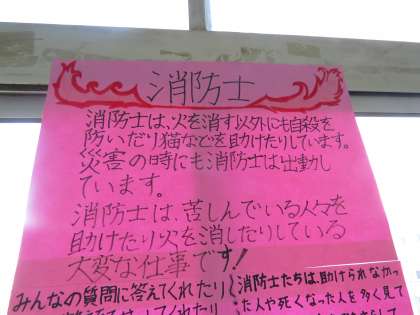 消防士
消防士は、火を消す以外にも自殺を
防いだり猫などを助けたりしています。
災害の時にも消防士は出動し
ています。
消防士は、苦しんでいる人々を
助けたり火を消したりしている
大変な仕事です!
みんなの質問に答えてくれたり
消防士たちは、助けられなかっ
た人や死くなった人を多く見て